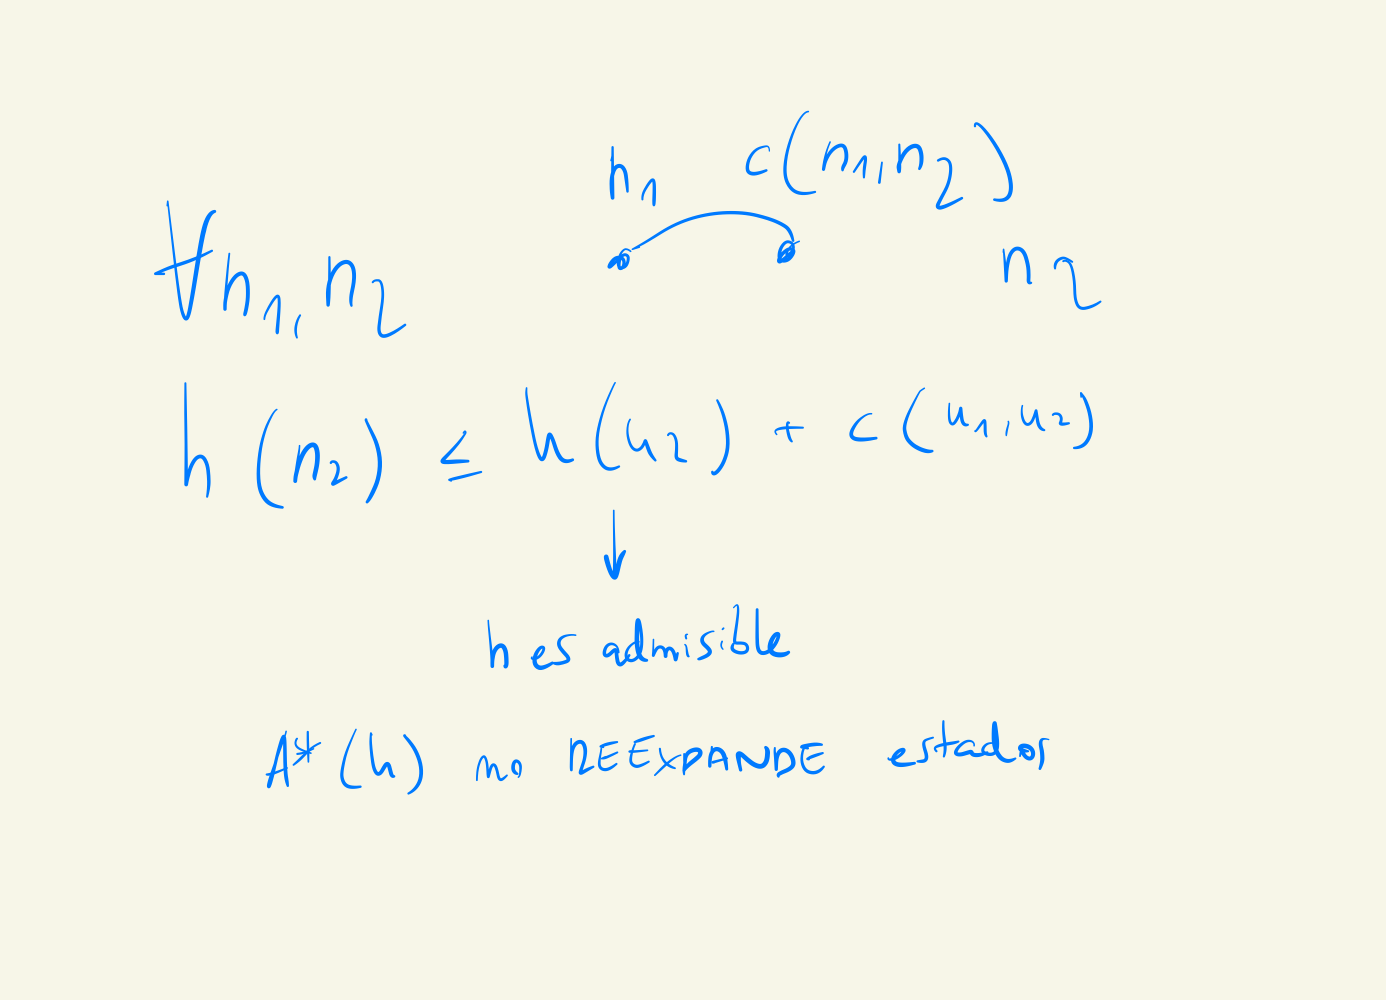 h₁ c(n₁,n₂)
∀n₁,n₂ n₂
h(n₂) ≤ h(n₂) + c(n₁,n₂)
↓
h es admisible
A*(h) no REEXPANDE estados